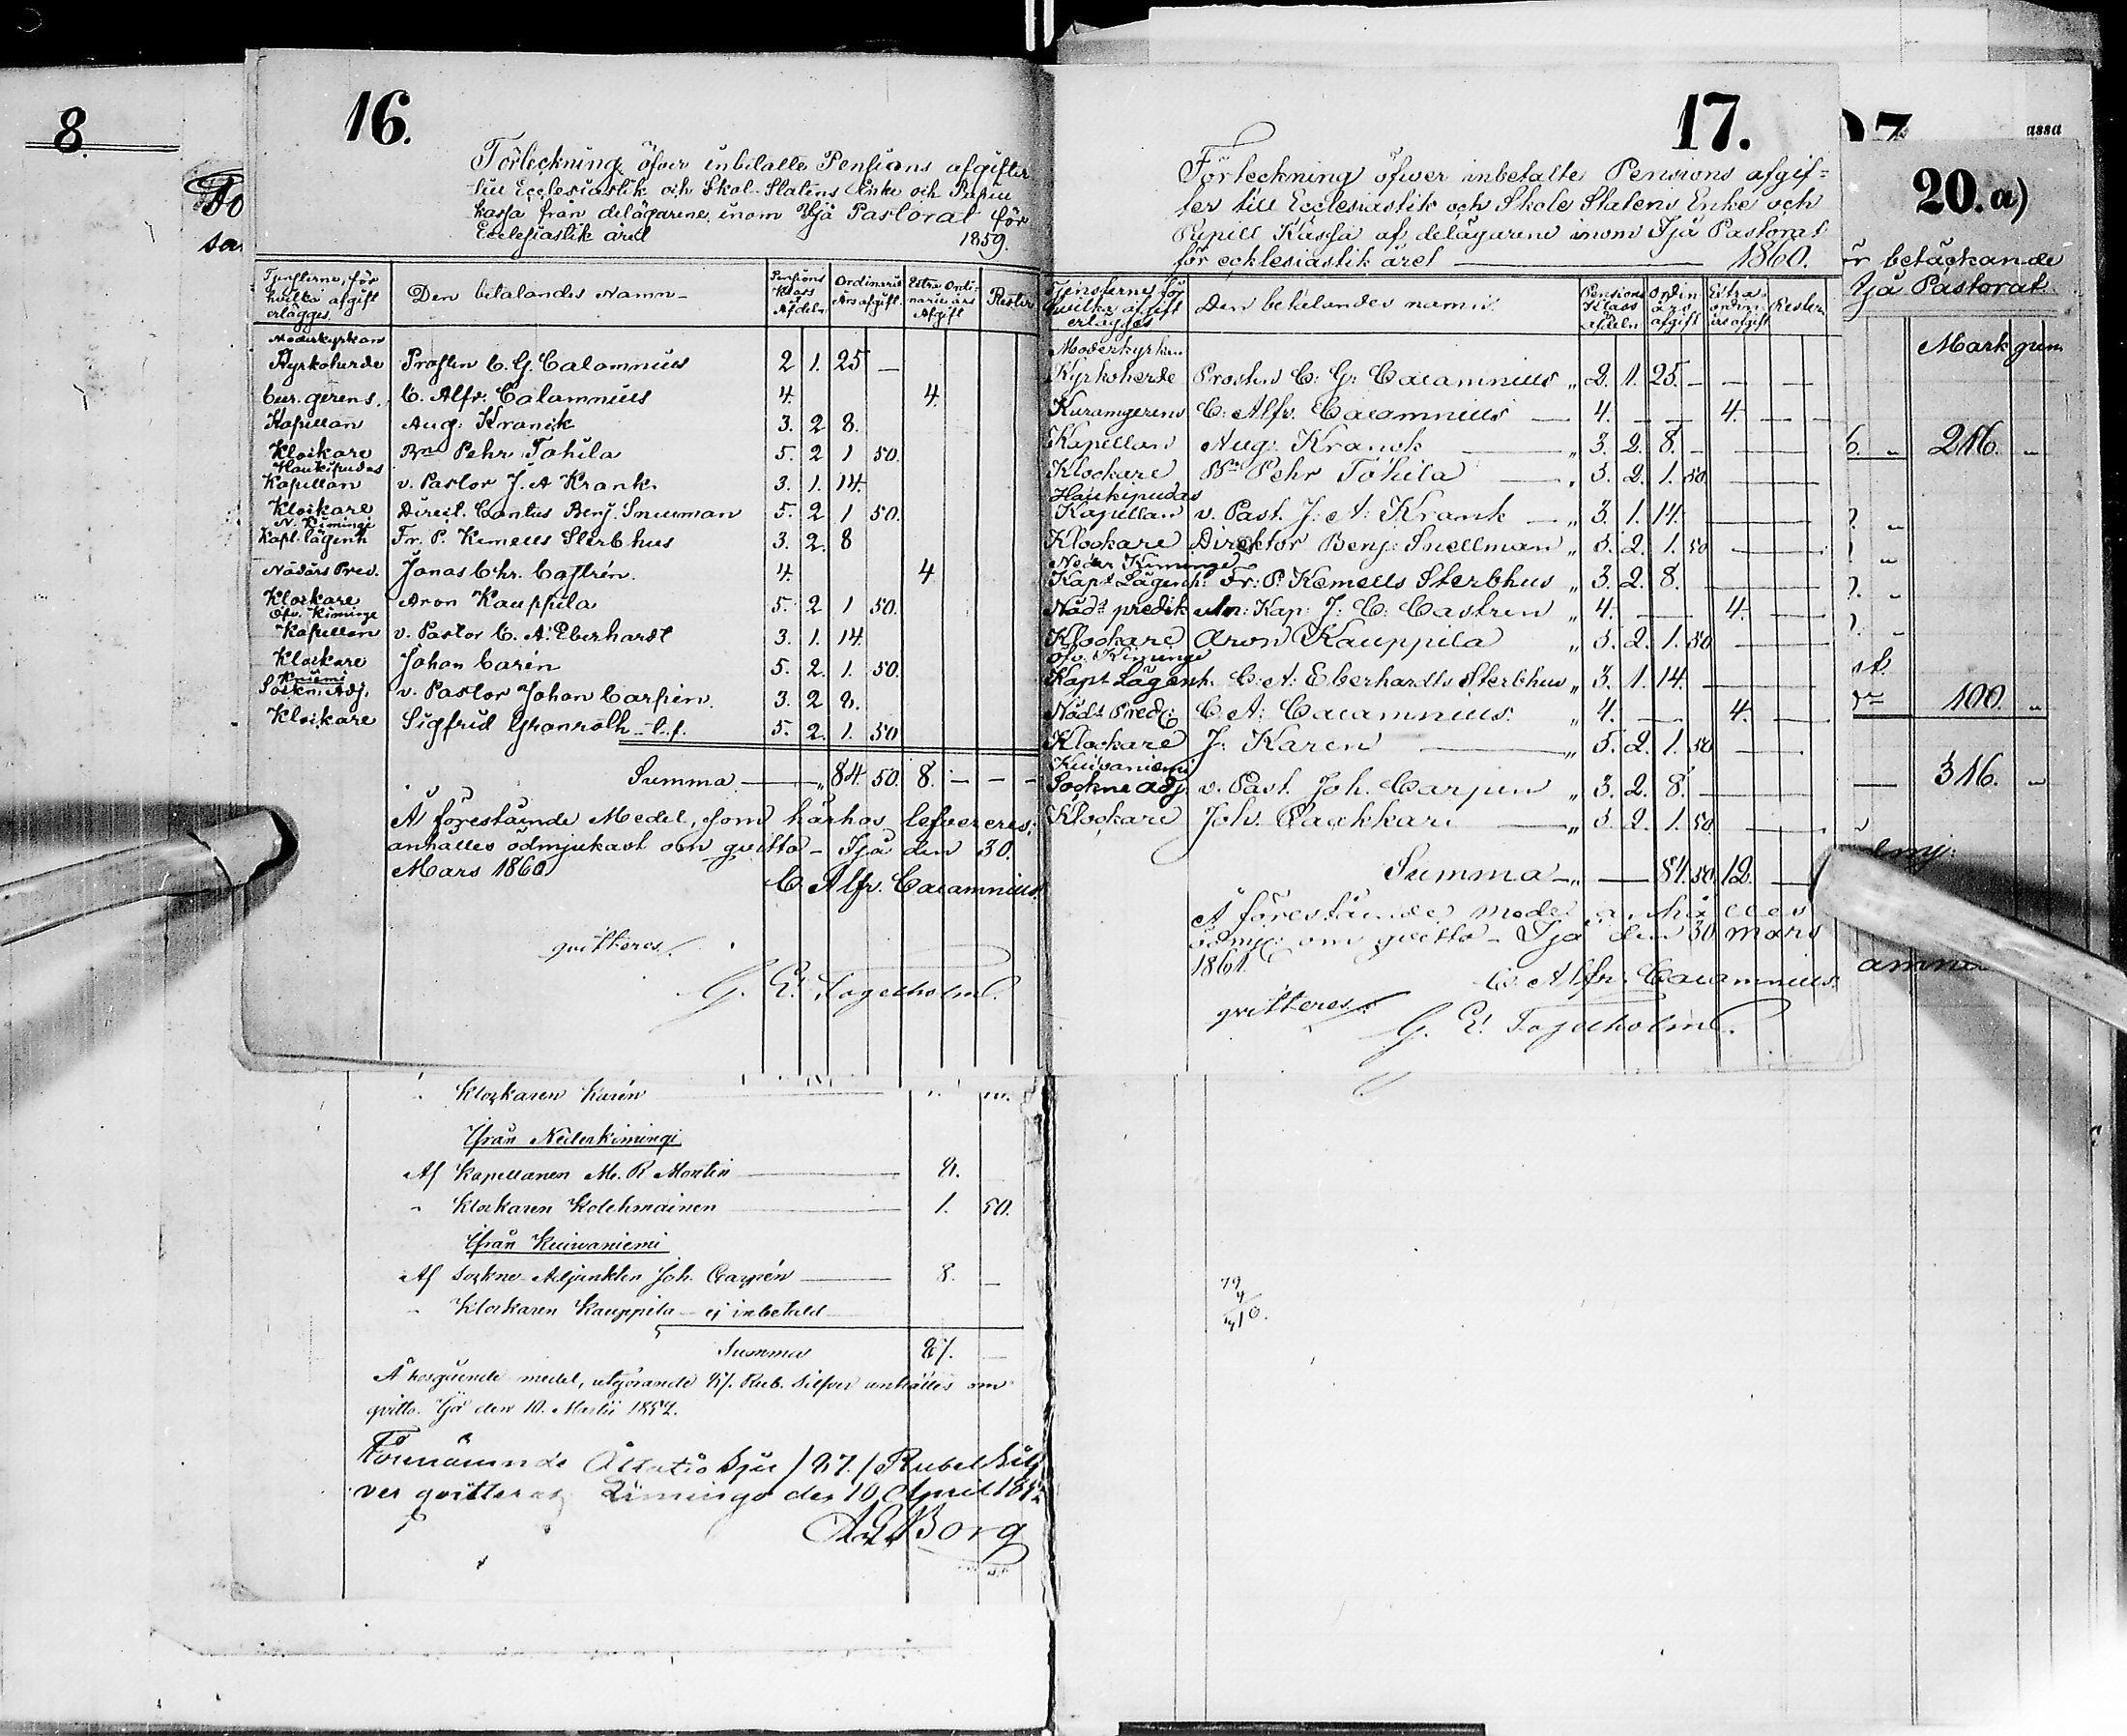 8.
16.
Förteckning öfver inbetalte Pensions afgifter
till Ecclesiastik och Skol-Statens Enke och Pupill
kassa från delägarene inom Ijå Pastorat för
Ecclesiastik året 1859.
Tjensterne, för hvilka afgift erlägges | Den betalandes Namn | Pensions Klass Afdeln | Ordinarie Årsafgift | Extra Ordinarie års Afgift | Rester
Moderkyrkan
Kyrkoherde Prosten C. G. Calamnius 2 1. 25 —
Cur. gerens. C. Alfr. Calamnius 4. 4.
Kapellan Aug. Kranck 3. 2 8.
Klockare Bn Pehr Tohila 5. 2 1 50.
Haukipudas
Kapellan v. Pastor J. A Krank 3. 1. 14.
Klockare Direct. Cantus Benj. Snellman 5. 2 1 50.
N. Kiminge
Kapl. lägenh Fr. P. Kemells Sterbhus 3. 2. 8
Nådårs Pred. Jonas Chr. Castrén. 4. 4
Klockare Aron Kauppila 5. 2 1 50.
Öfv. Kiminge
Kapellan v. Pastor C. A. Eberhardt 3. 1. 14.
Klockare Johan Carén 5. 2. 1. 50.
Kuiemi
Sockn. Adj. v. Pastor Johan Carpén. 3. 2 8.
Klockare Sigfrid Granroth 5. 2. 1. 50
Summa — 84. 50. 8. — — —
Å förestående Medel, som härhos lefvereres,
anhålles ödmjukast om qvitto — Ijå den 30.
Mars 1860
C. Alfr. Calamnius.
qvitteres.
G. E. Fogelholm.
Klockaren Karén
Ifrån Nederkimingi
Af Kapellanen M. R Montin 8.
" Klockaren Kolehmainen 1. 50.
Ifrån Kuivaniemi
Af Sockne-Adjunkten Joh. Carpén 8. —
" Klockaren Kauppila — ej inbetald
Summa 87. —
Å hosgående medel, utgörande 87. Rub. Silfver anhålles om
qvitto. Ijå den 10. Martii 1852.
Förenämnde Åttatio Sju / 87. / Rubel Silf
ver qvitteras Limingo den 10 April 1852
Borg
17.
Förteckning öfwer inbetalte Pensions afgif=
ter till Ecclesiastik och Skole Statens Enke och
Pupill Kassa af delägarene inom Ijå Pastorat
för ecklesiastik året — 1860.
Tjensterne för hwilka afgift erlägges | Den betalandes namn | Pensions Klass Afdeln | Ordin års afgift | Extra ordin. årsafgift | Rester
Moderkyrkan
Kyrkoherde Prosten C: G: Calamnius „ 2. 1. 25. — — —
Kuramgerens C: Alfr. Calamnius — 4. — — 4. — —
Kapellan Aug: Kranck „ 3. 2. 8. — — —
Klockare Bn Pehr Tohila „ 5. 2. 1. 50 — —
Haukipudas
Kapellan v. Past. J: A: Krank „ 3. 1. 14. — —
Klockare Direktor Benj: Snellman „ 5. 2. 1. 50 — —
Neder Kiminge
Kapl. Lägenh: Fr: P: Kemells Sterbhus „ 3. 2. 8. — —
Nåds predik utn: Kap: J: C: Castren „ 4. — 4. —
Klockare Aron Kauppila „ 5. 2. 1. 50 — —
Öfv. Kiminge
Kapl Lägenh. C: A: Eberhardts Sterbhus „ 3. 1. 14. — —
Nåds Pred: C. A: Calamnius „ 4. — 4. —
Klockare J: Karen „ 5. 2. 1. 50 —
Kuivaniemi
Sockne adj. v. Past. Joh. Carpen „ 3. 2. 8. —
Klockare Joh. Paakkari „ 5. 2. 1. 50 — —
Summa „ — 84. 50. 12. —
Å förestående medel anhålles
ödmj: om qvitto — Ijå den 30 mars
1861.
C. Alfr. Calamnius.
qvitteres.
G. E. Fogelholm.
assa
20. a)
ör betäckande
Ijå Pastorat
Mark
216. „
100. „
316. „
ödmj:
amnius